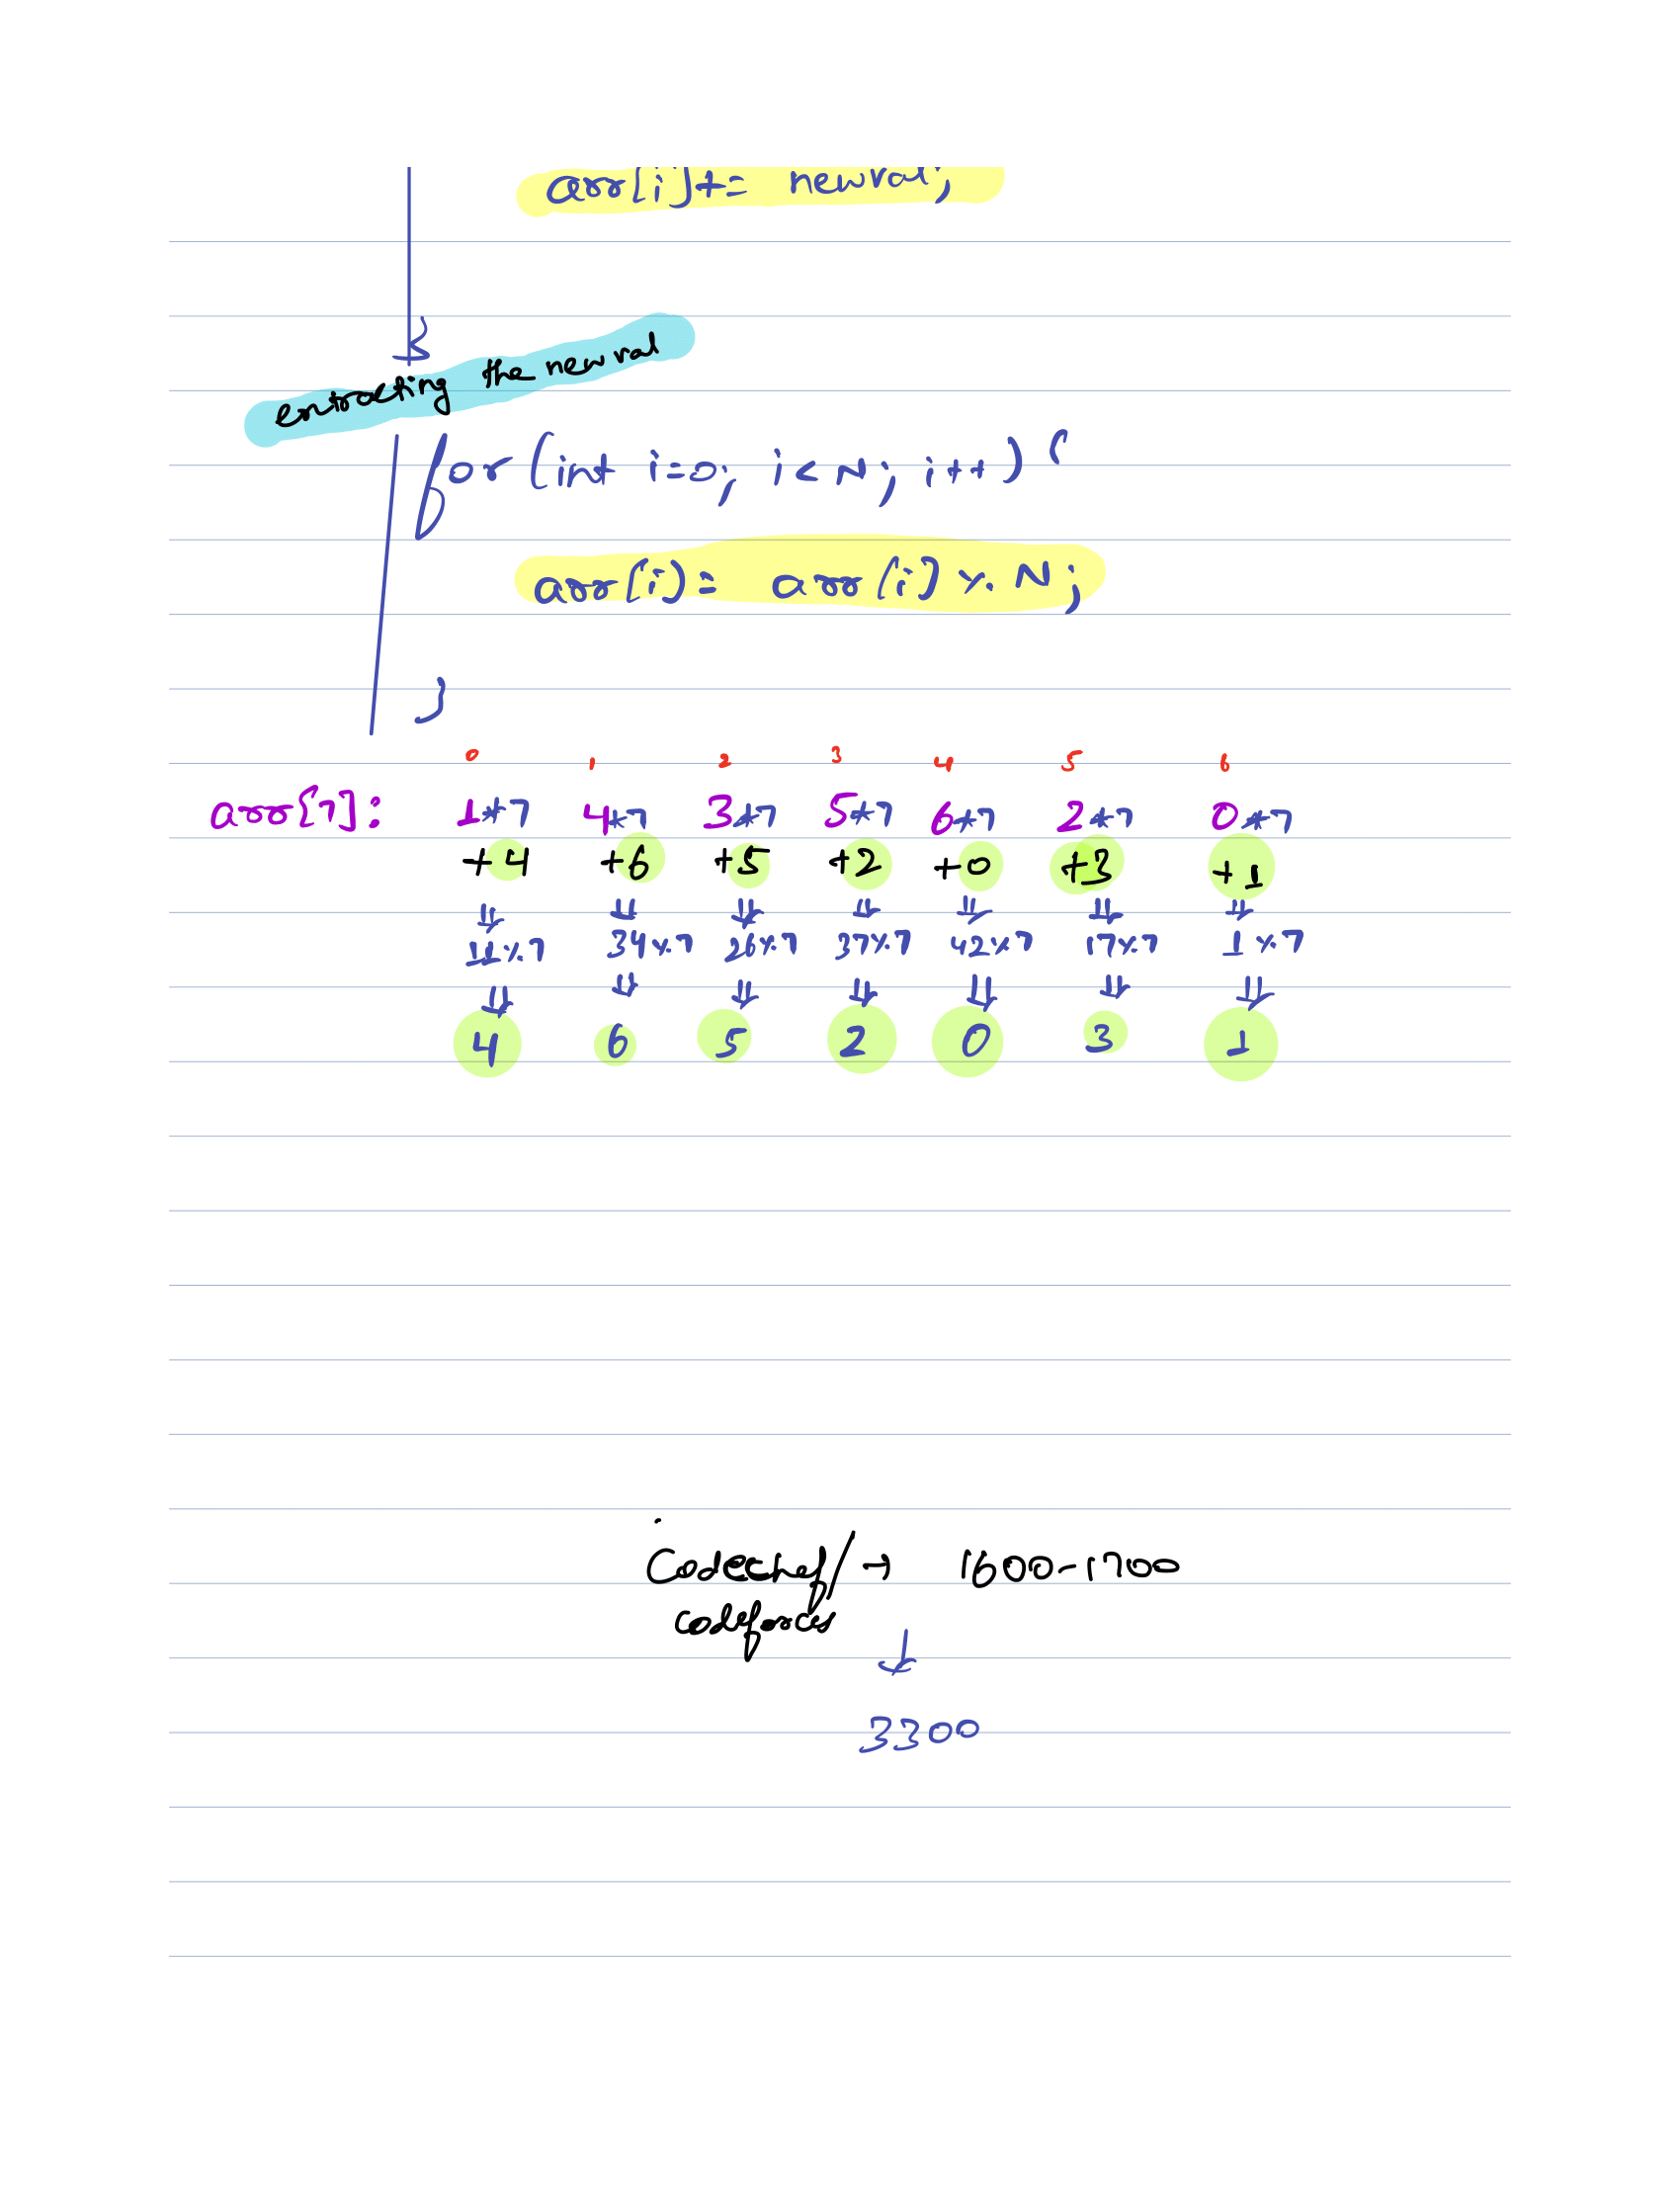 arr[i]+= newval;
}
extracting the new val
for (int i=0; i< N; i++) {
arr[i] = arr[i] % N;
}
0 1 2 3 4 5 6
arr[7]: 1*7 4*7 3*7 5*7 6*7 2*7 0*7
+4 +6 +5 +2 +0 +3 +1
⇓ ⇓ ⇓ ⇓ ⇓ ⇓ ⇓
11%7 34%7 26%7 37%7 42%7 17%7 1%7
⇓ ⇓ ⇓ ⇓ ⇓ ⇓ ⇓
4 6 5 2 0 3 1
Codechef/ → 1600-1700
codeforces
↓
3300